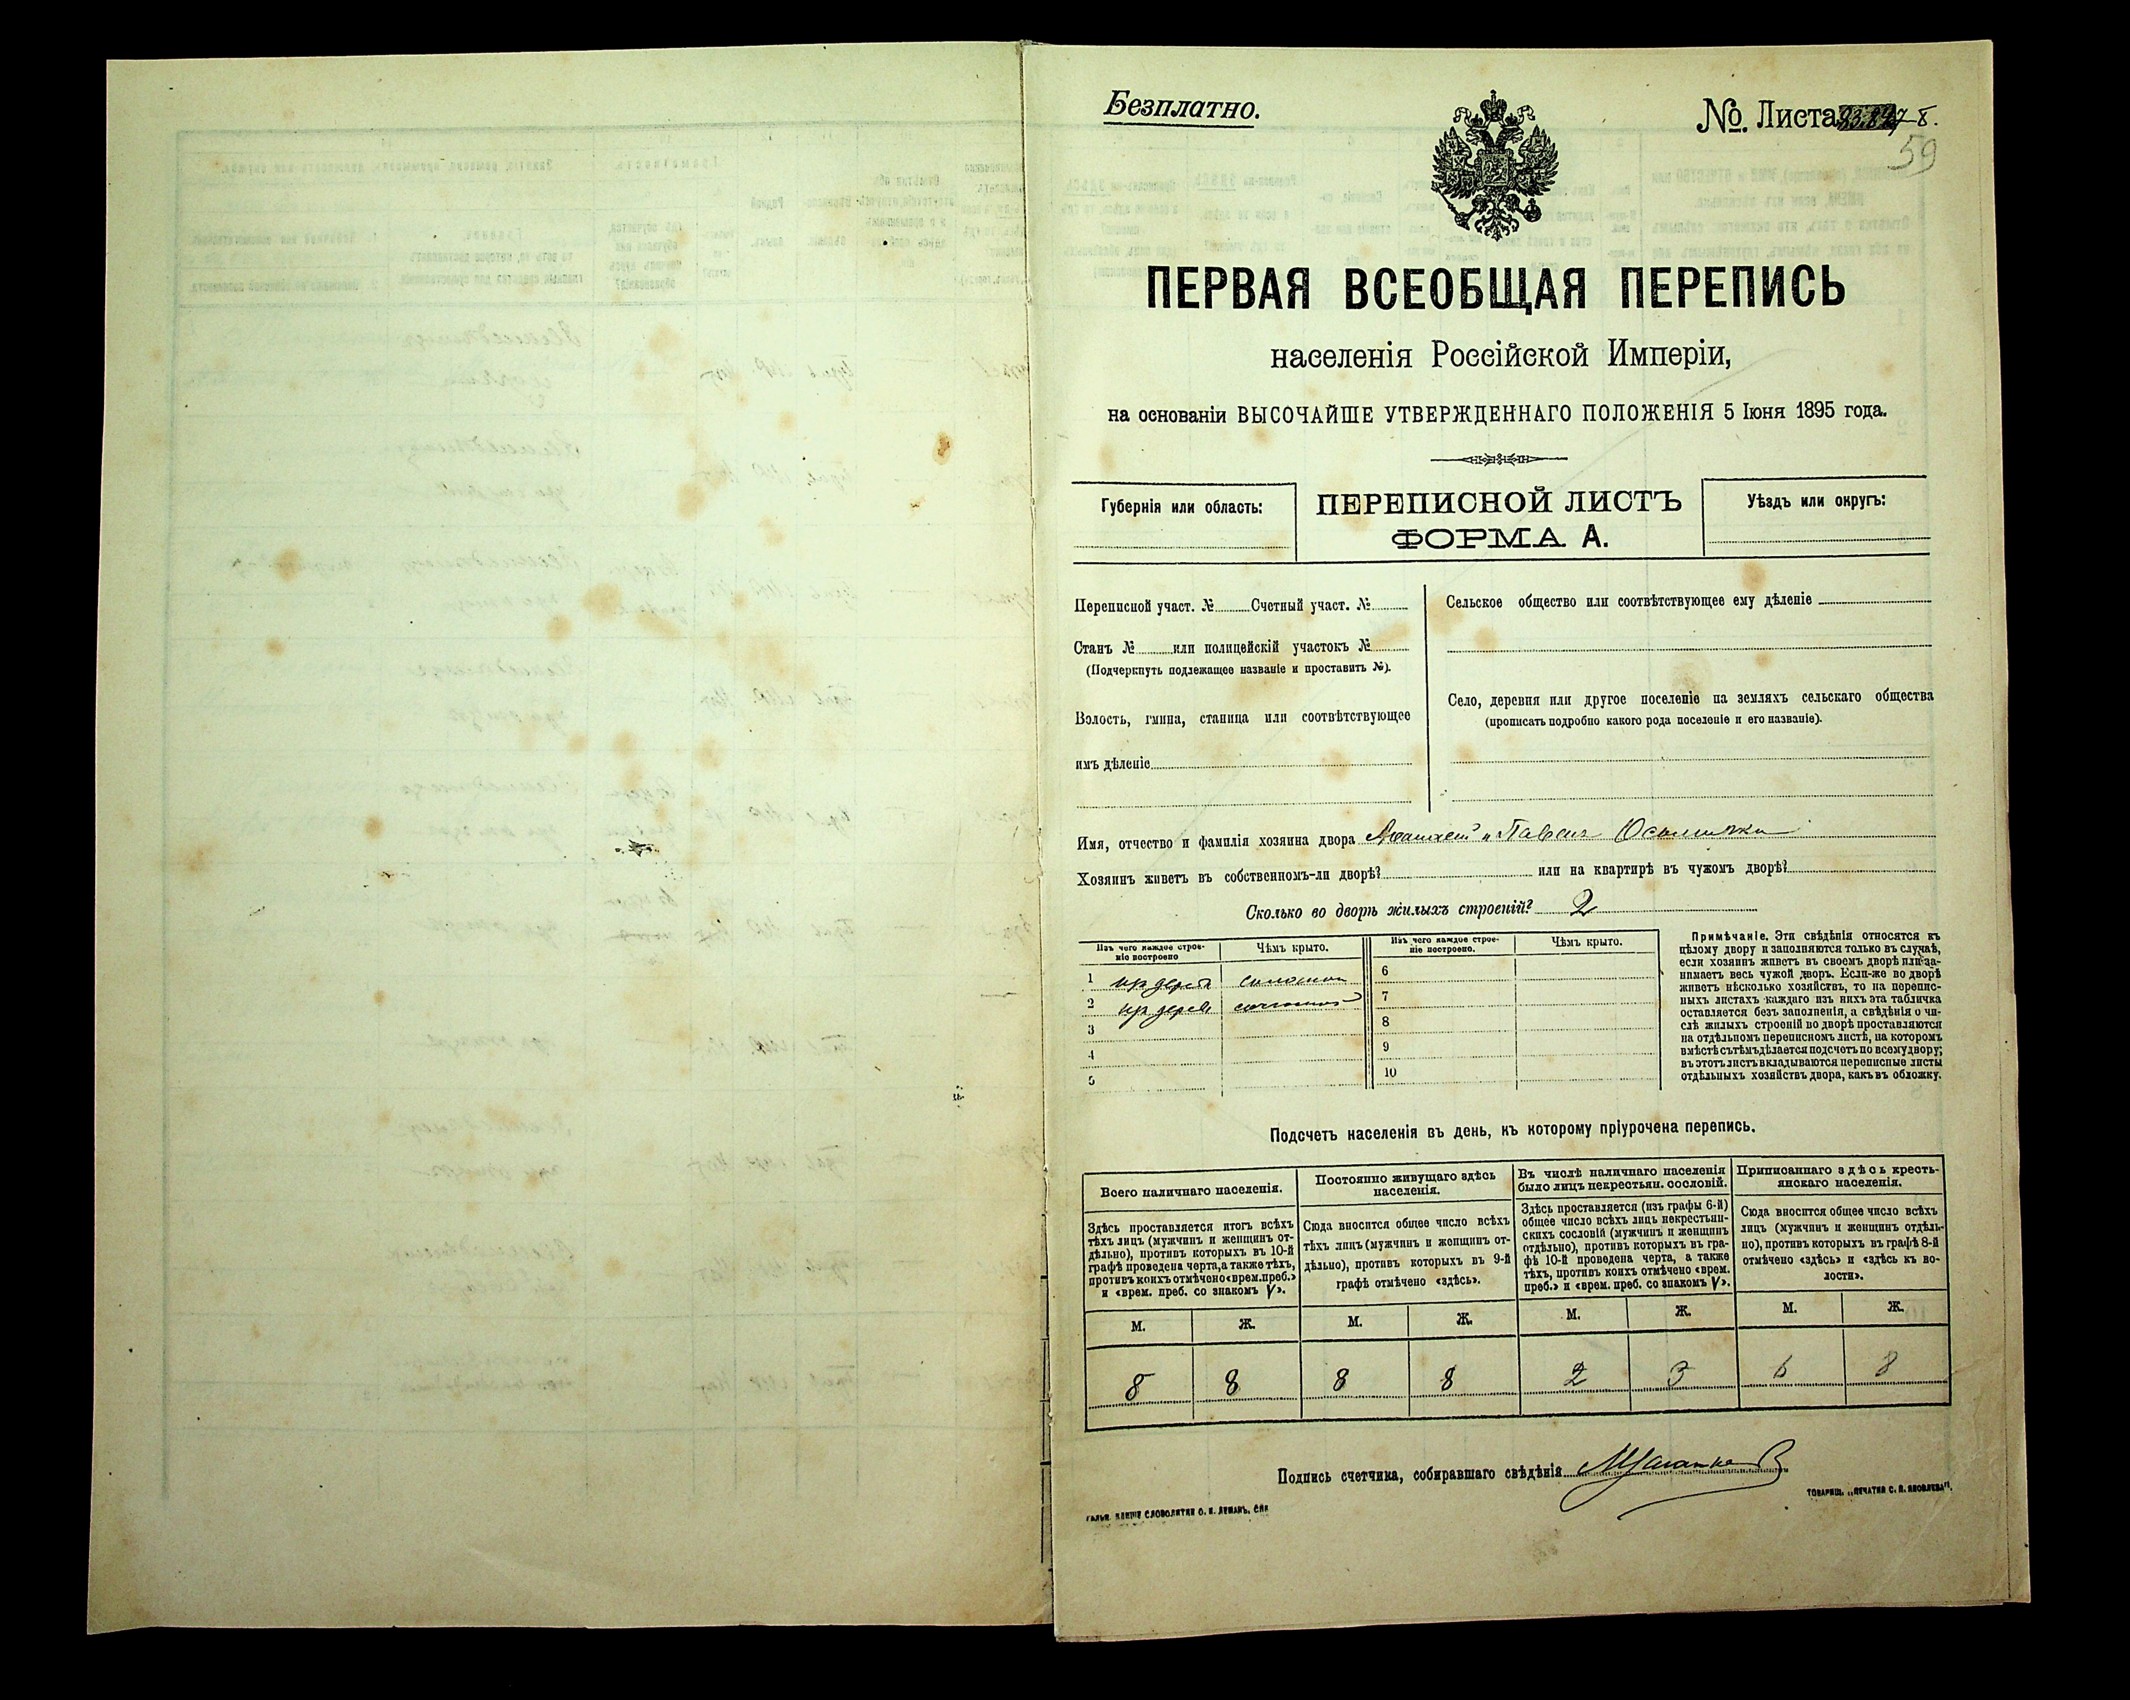 Безплатно.
№. Листа 7-8.
59
ПЕРВАЯ ВСЕОБЩАЯ ПЕРЕПИСЬ
населенія Россійской Имперіи,
на основаніи ВЫСОЧАЙШЕ УТВЕРЖДЕННАГО ПОЛОЖЕНІЯ 5 Іюня 1895 года.
Губернія или область:
ПЕРЕПИСНОЙ ЛИСТЪ
ФОРМА А.
Уѣздъ или округъ:
Переписной участ. № Счетный участ. №
Станъ № или полицейскій участокъ №
(Подчеркнуть подлежащее названіе и проставить №).
Волость, гмина, станица или соотвѣтствующее
имъ дѣленіе
Сельское общество или соотвѣтствующее ему дѣленіе
Село, деревня или другое поселеніе на земляхъ сельскаго общества
(прописать подробно какого рода поселеніе и его названіе).
Имя, отчество и фамилія хозяина двора и Павелъ
Хозяинъ живетъ въ собственномъ-ли дворѣ? или на квартирѣ въ чужомъ дворѣ?
Сколько во дворѣ жилыхъ строеній? 2
Изъ чего каждое строе-
ніе построено
Чѣмъ крыто.
1 изъ дерева соломой
2 изъ дерева соломой
3
4
5
Изъ чего каждое строе-
ніе построено.
Чѣмъ крыто.
6
7
8
9
10
Примѣчаніе. Эти свѣдѣнія относятся къ
цѣлому двору и заполняются только въ случаѣ,
если хозяинъ живетъ въ своемъ дворѣ или за-
нимаетъ весь чужой дворъ. Если-же во дворѣ
живетъ нѣсколько хозяйствъ, то на перепис-
ныхъ листахъ каждаго изъ нихъ эта табличка
оставляется безъ заполненія, а свѣдѣнія о чи-
слѣ жилыхъ строеній во дворѣ проставляются
на отдѣльномъ переписномъ листѣ, на которомъ
вмѣстѣ съ тѣмъ дѣлается подсчетъ по всему двору;
въ этотъ листъ вкладываются переписные листы
отдѣльныхъ хозяйствъ двора, какъ въ обложку.
Подсчетъ населенія въ день, къ которому пріурочена перепись.
Всего наличнаго населенія.
Здѣсь проставляется итогъ всѣхъ
тѣхъ лицъ (мужчинъ и женщинъ от-
дѣльно), противъ которыхъ въ 10-й
графѣ проведена черта, а также тѣхъ,
противъ коихъ отмѣчено «врем. преб.»
и «врем. преб. со знакомъ V».
Постоянно живущаго здѣсь
населенія.
Сюда вносится общее число всѣхъ
тѣхъ лицъ (мужчинъ и женщинъ от-
дѣльно), противъ которыхъ въ 9-й
графѣ отмѣчено «здѣсь».
Въ числѣ наличнаго населенія
было лицъ некрестьян. сословій.
Здѣсь проставляется (изъ графы 6-й)
общее число всѣхъ лицъ некрестьян-
скихъ сословій (мужчинъ и женщинъ
отдѣльно), противъ которыхъ въ гра-
фѣ 10-й проведена черта, а также
тѣхъ, противъ коихъ отмѣчено «врем.
преб.» и «врем. преб. со знакомъ V».
Приписаннаго здѣсь кресть-
янскаго населенія.
Сюда вносится общее число всѣхъ
лицъ (мужчинъ и женщинъ отдѣль-
но), противъ которыхъ въ графѣ 8-й
отмѣчено «здѣсь» и «здѣсь къ во-
лости».
М. Ж. М. Ж. М. Ж. М. Ж.
8 8 8 8 2 3 6 8
Подпись счетчика, собиравшаго свѣдѣнія
СЛОВОЛИТНИ О. И. ЛЕМАНЪ, СПБ
ТОВАРИЩ. „ПЕЧАТНЯ С. П. ЯКОВЛЕВА".